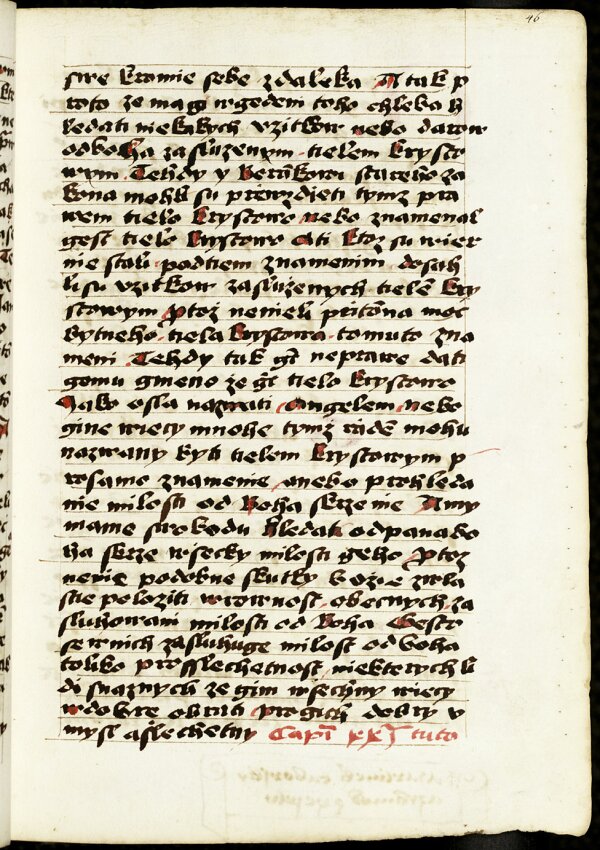 46
swe kromie sebe zdaleka A tak p
roto ze magi wgedem toho chleba h
ledati niekakych vzitkow nebo darow
odboha zasluzenym tielem krysto
wym Tehdy y Beránkowi stareho za
kona mohli su prziewzdieti tymz pra
wem tielo krystowo nebo znamenal
gest tielo krystowo Ati ktoz su wier
nie stali podtiem znamenim dosah
li su vzitkow zasluzenych tielē kry
stowym ptoz nemieli pritōna moc
bytneho tiela krystowa tomuto zna
meni Tehdy tak gt neprawe dati
gomu gmeno ze gt tielo krystowo
Jako osla nazwati Angelem nebo
gine wiecy mnohe tymz rzadē mohu
nazwany byti tielem krystowym p
rosamo znamenie anebo prohleda
nie milosti od Boha skrze nie Amy
mame swobodu hledati odpana bo
ha skrze wsecky milosti geho ptoz
nenie podobne skutky bozie zwla
stie poloziti wrownost obecnych za
sluhowani milosti od Boha Gesto
se wnich zasluhuge milost odboha
toliko prosslechetnost niekterych li
di snaznych ze gim wsechny wiecy
wdobre obrati progich dobry v
mysl aslechetny Capt xxj tuto